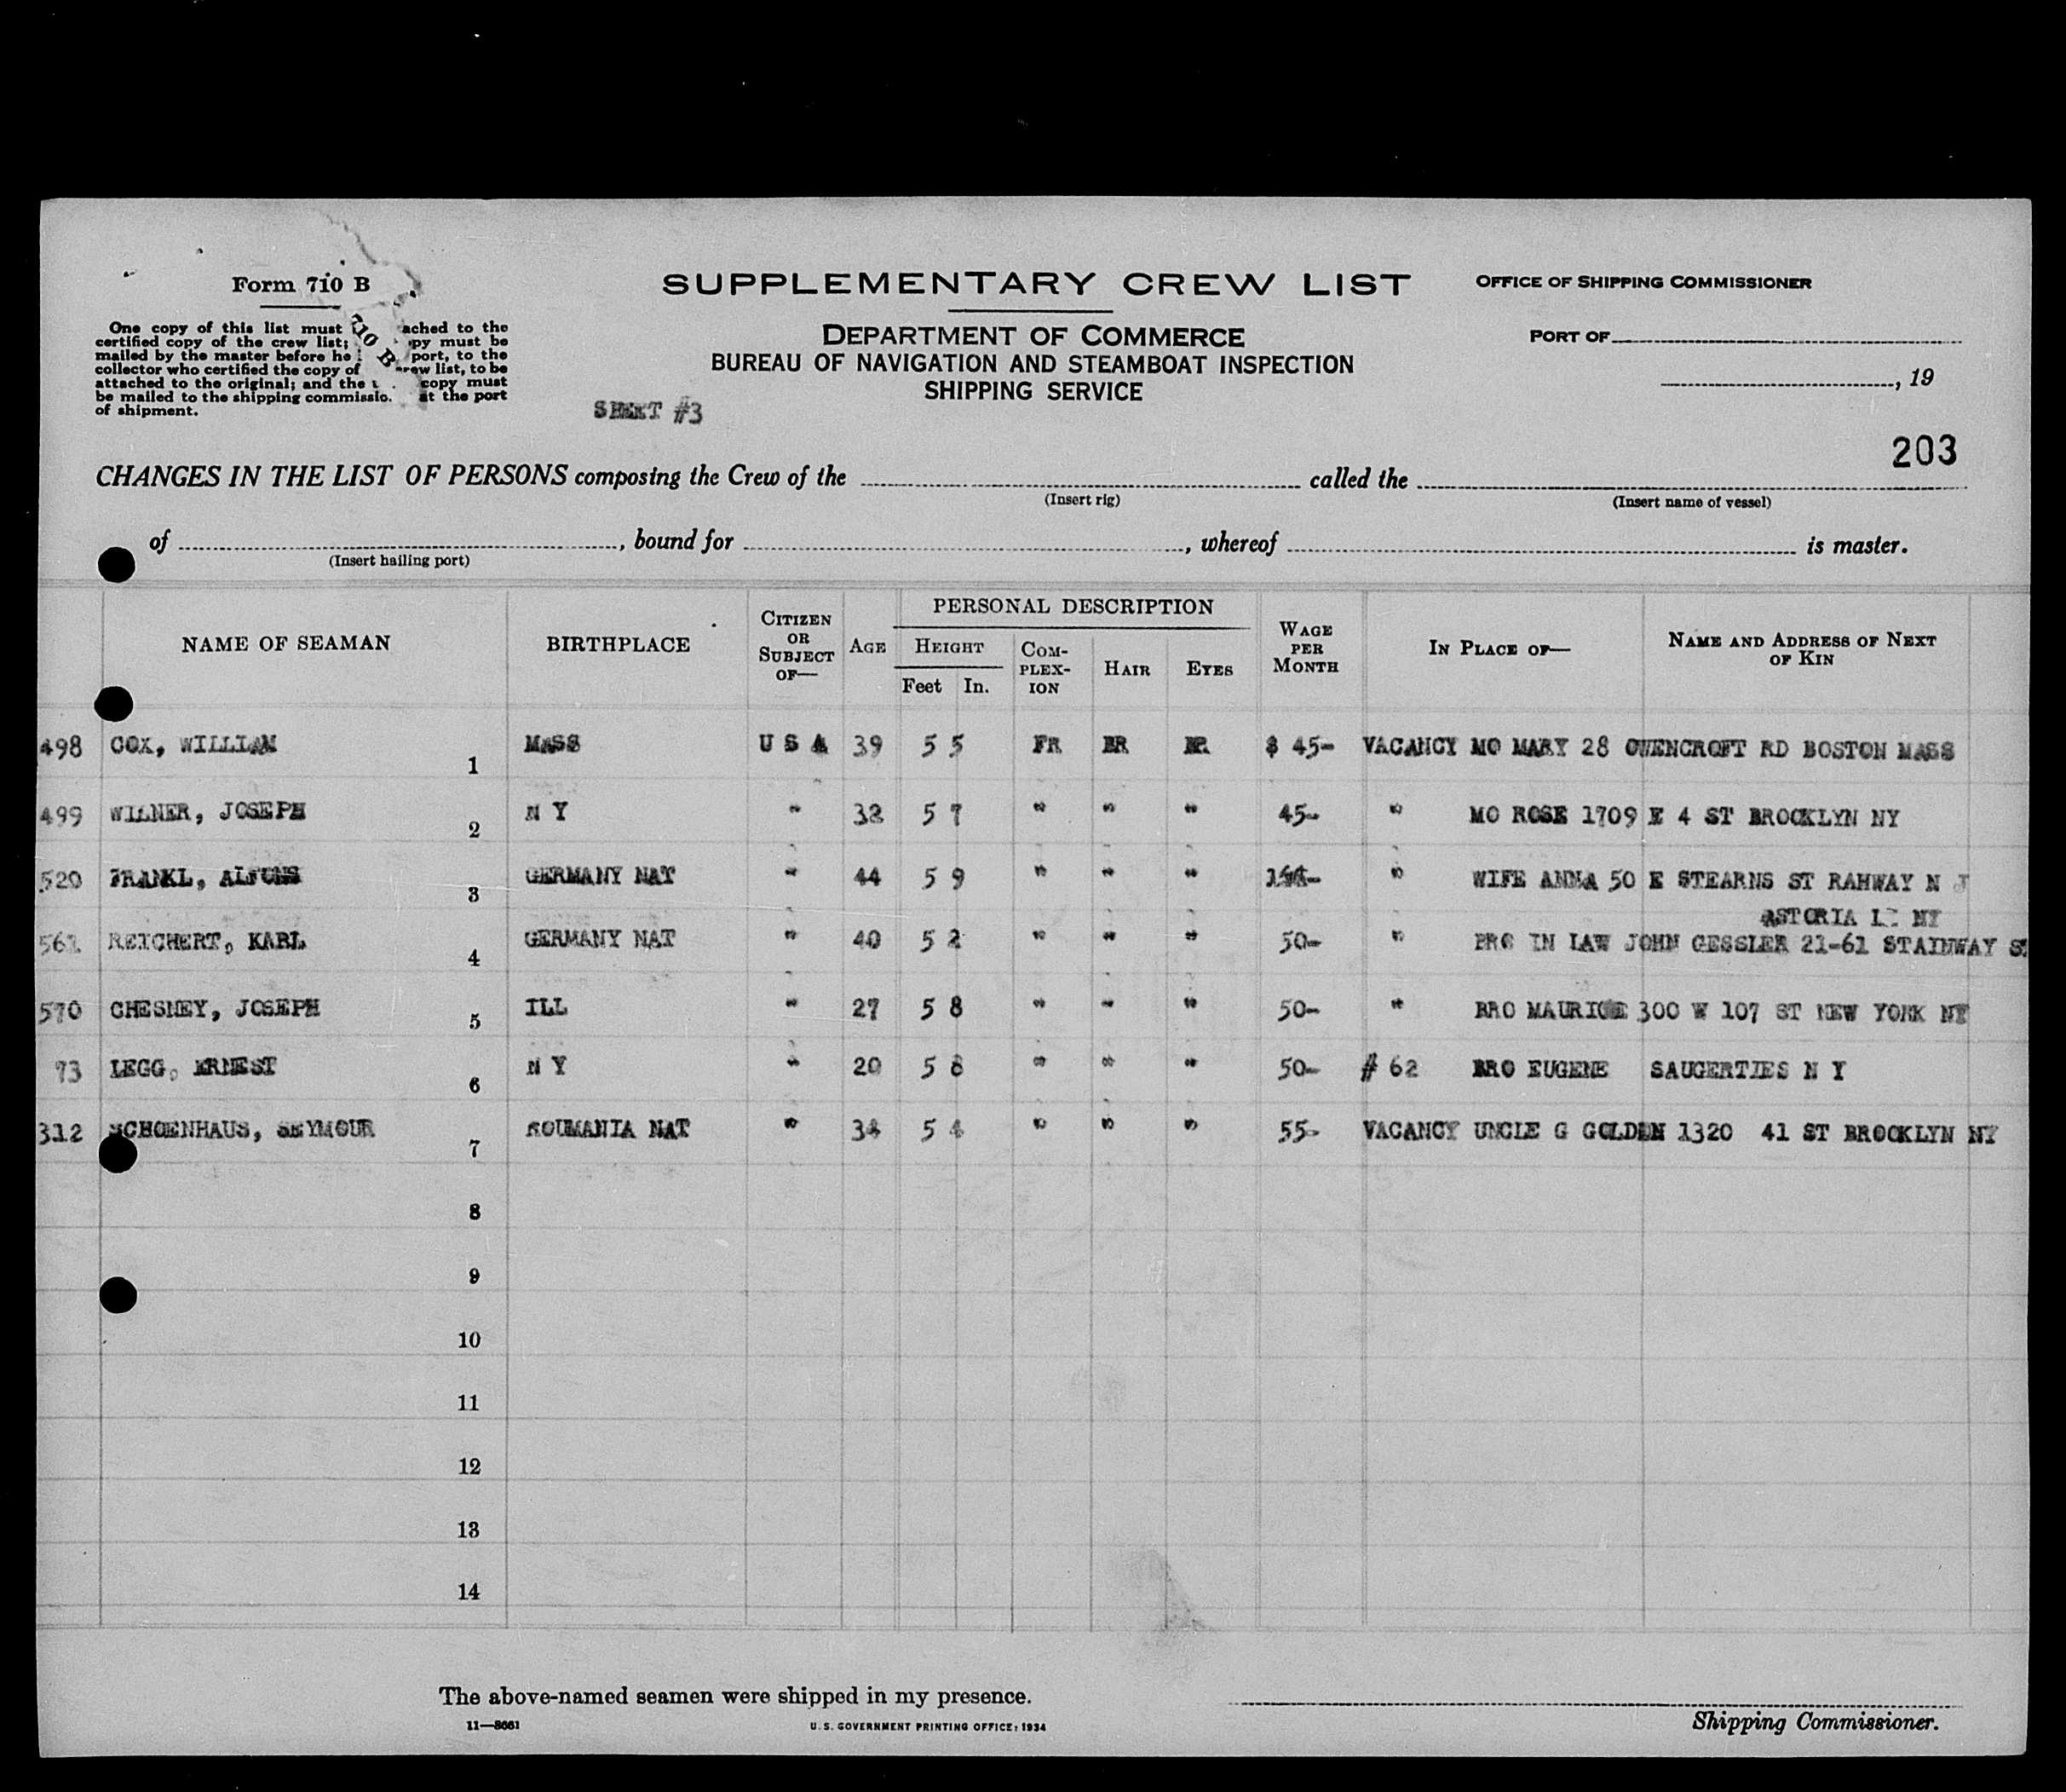 Form 710 B
SUPPLEMENTARY CREW LIST
OFFICE OF SHIPPING COMMISSIONER
One copy of this list must ached to the
certified copy of the crew list; py must be
mailed by the master before he port, to the
collector who certified the copy of rew list, to be
attached to the original; and the copy must
be mailed to the shipping commissio. at the port
of shipment.
710 B
DEPARTMENT OF COMMERCE
BUREAU OF NAVIGATION AND STEAMBOAT INSPECTION
SHIPPING SERVICE
PORT OF
, 19
SHEET #3
203
CHANGES IN THE LIST OF PERSONS composing the Crew of the called the
(Insert rig) (Insert name of vessel)
of , bound for , whereof is master.
(Insert hailing port)
NAME OF SEAMAN BIRTHPLACE CITIZEN OR SUBJECT OF— AGE PERSONAL DESCRIPTION HEIGHT Feet In. COM-PLEX-ION HAIR EYES WAGE PER MONTH IN PLACE OF— NAME AND ADDRESS OF NEXT OF KIN
498 COX, WILLIAM 1 MASS U S A 39 5 5 FR BR BR $ 45- VACANCY MO MARY 28 OWENCROFT RD BOSTON MASS
499 WILNER, JOSEPH 2 N Y " 32 5 7 " " " 45- " MO ROSE 1709 E 4 ST BROCKLYN NY
520 FRANKL, ALFONS 3 GERMANY NAT " 44 5 9 " " " " WIFE ANNA 50 E STEARNS ST RAHWAY N J
ASTORIA LI NY
561 REICHERT, KARL 4 GERMANY NAT " 40 5 2 " " " 50- " BRO IN LAW JOHN GESSLER 21-61 STAINWAY S
570 CHESNEY, JOSEPH 5 ILL " 27 5 8 " " " 50- " BRO MAURICE 300 W 107 ST NEW YORK NY
73 LEGG, ERNEST 6 N Y " 20 5 8 " " " 50- # 62 BRO EUGENE SAUGERTIES N Y
312 SCHOENHAUS, SEYMOUR 7 ROUMANIA NAT " 34 5 4 " " " 55- VACANCY UNCLE G GOLDEN 1320 41 ST BROCKLYN NY
8
9
10
11
12
13
14
The above-named seamen were shipped in my presence.
11—8661 U. S. GOVERNMENT PRINTING OFFICE: 1934
Shipping Commissioner.